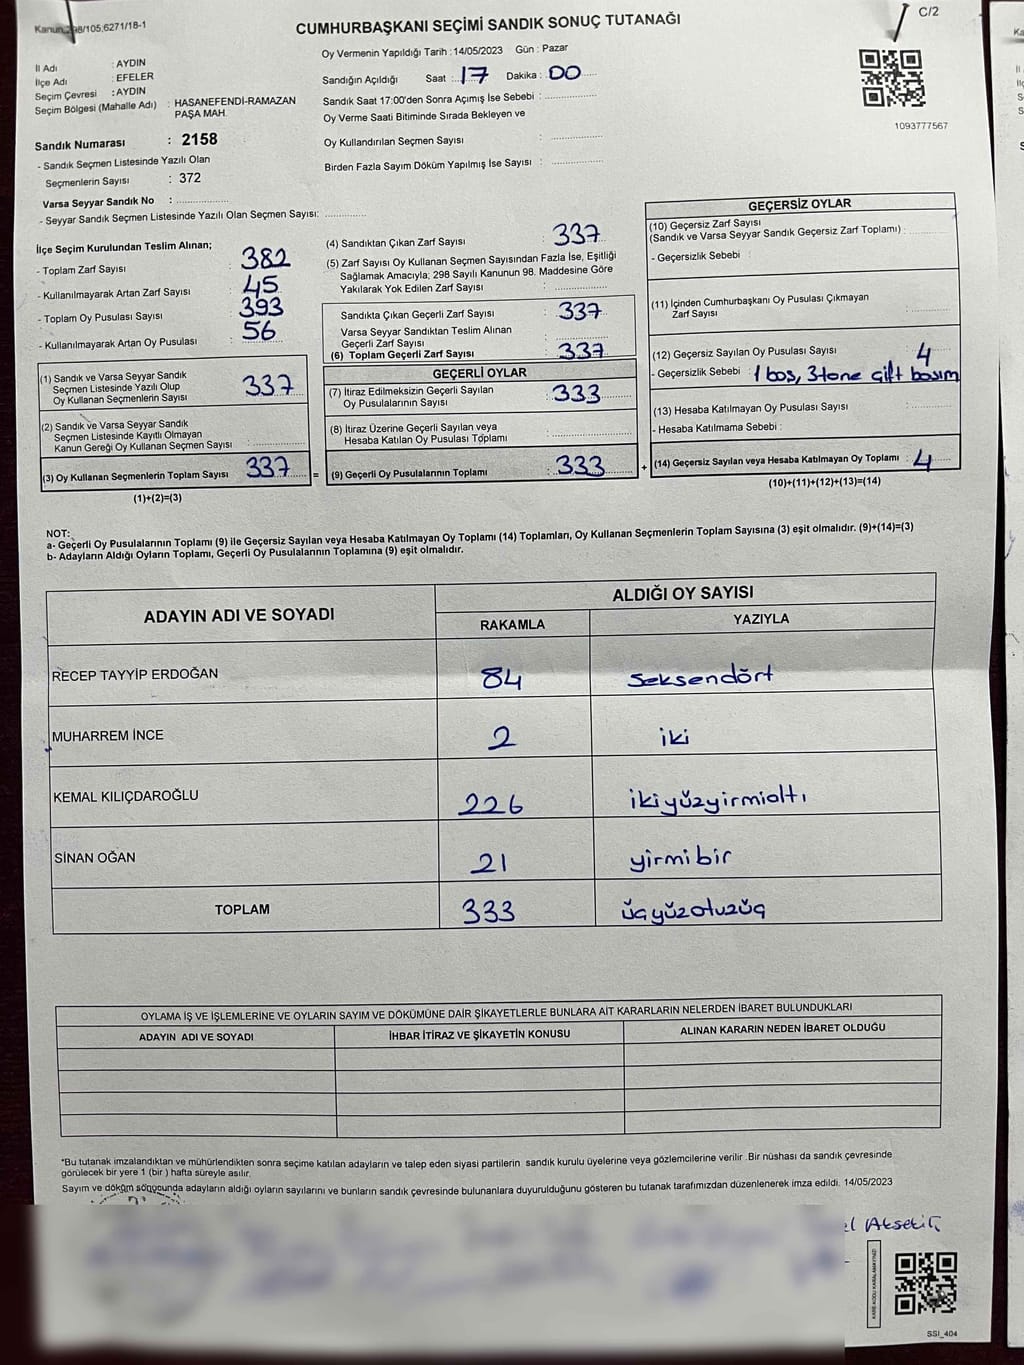 Kanun 298/105,6271/18-1
C/2
CUMHURBAŞKANI SEÇİMİ SANDIK SONUÇ TUTANAĞI
İl Adı : AYDIN
İlçe Adı : EFELER
Seçim Çevresi : AYDIN
Seçim Bölgesi (Mahalle Adı) : HASANEFENDİ-RAMAZAN
PAŞA MAH.
Sandık Numarası : 2158
- Sandık Seçmen Listesinde Yazılı Olan
Seçmenlerin Sayısı : 372
Varsa Seyyar Sandık No :
- Seyyar Sandık Seçmen Listesinde Yazılı Olan Seçmen Sayısı:
Oy Vermenin Yapıldığı Tarih : 14/05/2023 Gün : Pazar
Sandığın Açıldığı Saat : 17 Dakika : 00
Sandık Saat 17:00'den Sonra Açımış İse Sebebi :
Oy Verme Saati Bitiminde Sırada Bekleyen ve
Oy Kullandırılan Seçmen Sayısı :
Birden Fazla Sayım Döküm Yapılmış İse Sayısı :
1093777567
İlçe Seçim Kurulundan Teslim Alınan;
- Toplam Zarf Sayısı : 382
- Kullanılmayarak Artan Zarf Sayısı : 45
- Toplam Oy Pusulası Sayısı : 393
- Kullanılmayarak Artan Oy Pusulası : 56
(1) Sandık ve Varsa Seyyar Sandık
Seçmen Listesinde Yazılı Olup
Oy Kullanan Seçmenlerin Sayısı : 337
(2) Sandık ve Varsa Seyyar Sandık
Seçmen Listesinde Kayıtlı Olmayan
Kanun Gereği Oy Kullanan Seçmen Sayısı :
(3) Oy Kullanan Seçmenlerin Toplam Sayısı : 337 =
(1)+(2)=(3)
(4) Sandıktan Çıkan Zarf Sayısı : 337
(5) Zarf Sayısı Oy Kullanan Seçmen Sayısından Fazla İse, Eşitliği
Sağlamak Amacıyla; 298 Sayılı Kanunun 98. Maddesine Göre
Yakılarak Yok Edilen Zarf Sayısı :
Sandıkta Çıkan Geçerli Zarf Sayısı : 337
Varsa Seyyar Sandıktan Teslim Alınan
Geçerli Zarf Sayısı :
(6) Toplam Geçerli Zarf Sayısı : 337
GEÇERLİ OYLAR
(7) İtiraz Edilmeksizin Geçerli Sayılan
Oy Pusulalarının Sayısı : 333
(8) İtiraz Üzerine Geçerli Sayılan veya
Hesaba Katılan Oy Pusulası Toplamı :
(9) Geçerli Oy Pusulalarının Toplamı : 333 +
GEÇERSİZ OYLAR
(10) Geçersiz Zarf Sayısı
(Sandık ve Varsa Seyyar Sandık Geçersiz Zarf Toplamı) :
- Geçersizlik Sebebi :
(11) İçinden Cumhurbaşkanı Oy Pusulası Çıkmayan
Zarf Sayısı :
(12) Geçersiz Sayılan Oy Pusulası Sayısı : 4
- Geçersizlik Sebebi : 1 boş, 3 tane çift basım
(13) Hesaba Katılmayan Oy Pusulası Sayısı :
- Hesaba Katılmama Sebebi :
(14) Geçersiz Sayılan veya Hesaba Katılmayan Oy Toplamı : 4
(10)+(11)+(12)+(13)=(14)
NOT:
a- Geçerli Oy Pusulalarının Toplamı (9) ile Geçersiz Sayılan veya Hesaba Katılmayan Oy Toplamı (14) Toplamları, Oy Kullanan Seçmenlerin Toplam Sayısına (3) eşit olmalıdır. (9)+(14)=(3)
b- Adayların Aldığı Oyların Toplamı, Geçerli Oy Pusulalarının Toplamına (9) eşit olmalıdır.
ADAYIN ADI VE SOYADI ALDIĞI OY SAYISI
RAKAMLA YAZIYLA
RECEP TAYYİP ERDOĞAN 84 seksendört
MUHARREM İNCE 2 iki
KEMAL KILIÇDAROĞLU 226 ikiyüzyirmialtı
SİNAN OĞAN 21 yirmibir
TOPLAM 333 üçyüzotuzüç
OYLAMA İŞ VE İŞLEMLERİNE VE OYLARIN SAYIM VE DÖKÜMÜNE DAİR ŞİKAYETLERLE BUNLARA AİT KARARLARIN NELERDEN İBARET BULUNDUKLARI
ADAYIN ADI VE SOYADI İHBAR İTİRAZ VE ŞİKAYETİN KONUSU ALINAN KARARIN NEDEN İBARET OLDUĞU
*Bu tutanak imzalandıktan ve mühürlendikten sonra seçime katılan adayların ve talep eden siyasi partilerin sandık kurulu üyelerine veya gözlemcilerine verilir .Bir nüshası da sandık çevresinde
görülecek bir yere 1 (bir ) hafta süreyle asılır.
Sayım ve döküm sonucunda adayların aldığı oyların sayılarını ve bunların sandık çevresinde bulunanlara duyurulduğunu gösteren bu tutanak tarafımızdan düzenlenerek imza edildi. 14/05/2023
el Aksekili
KARE KODU KARALAMAYINIZ!
SSI_404